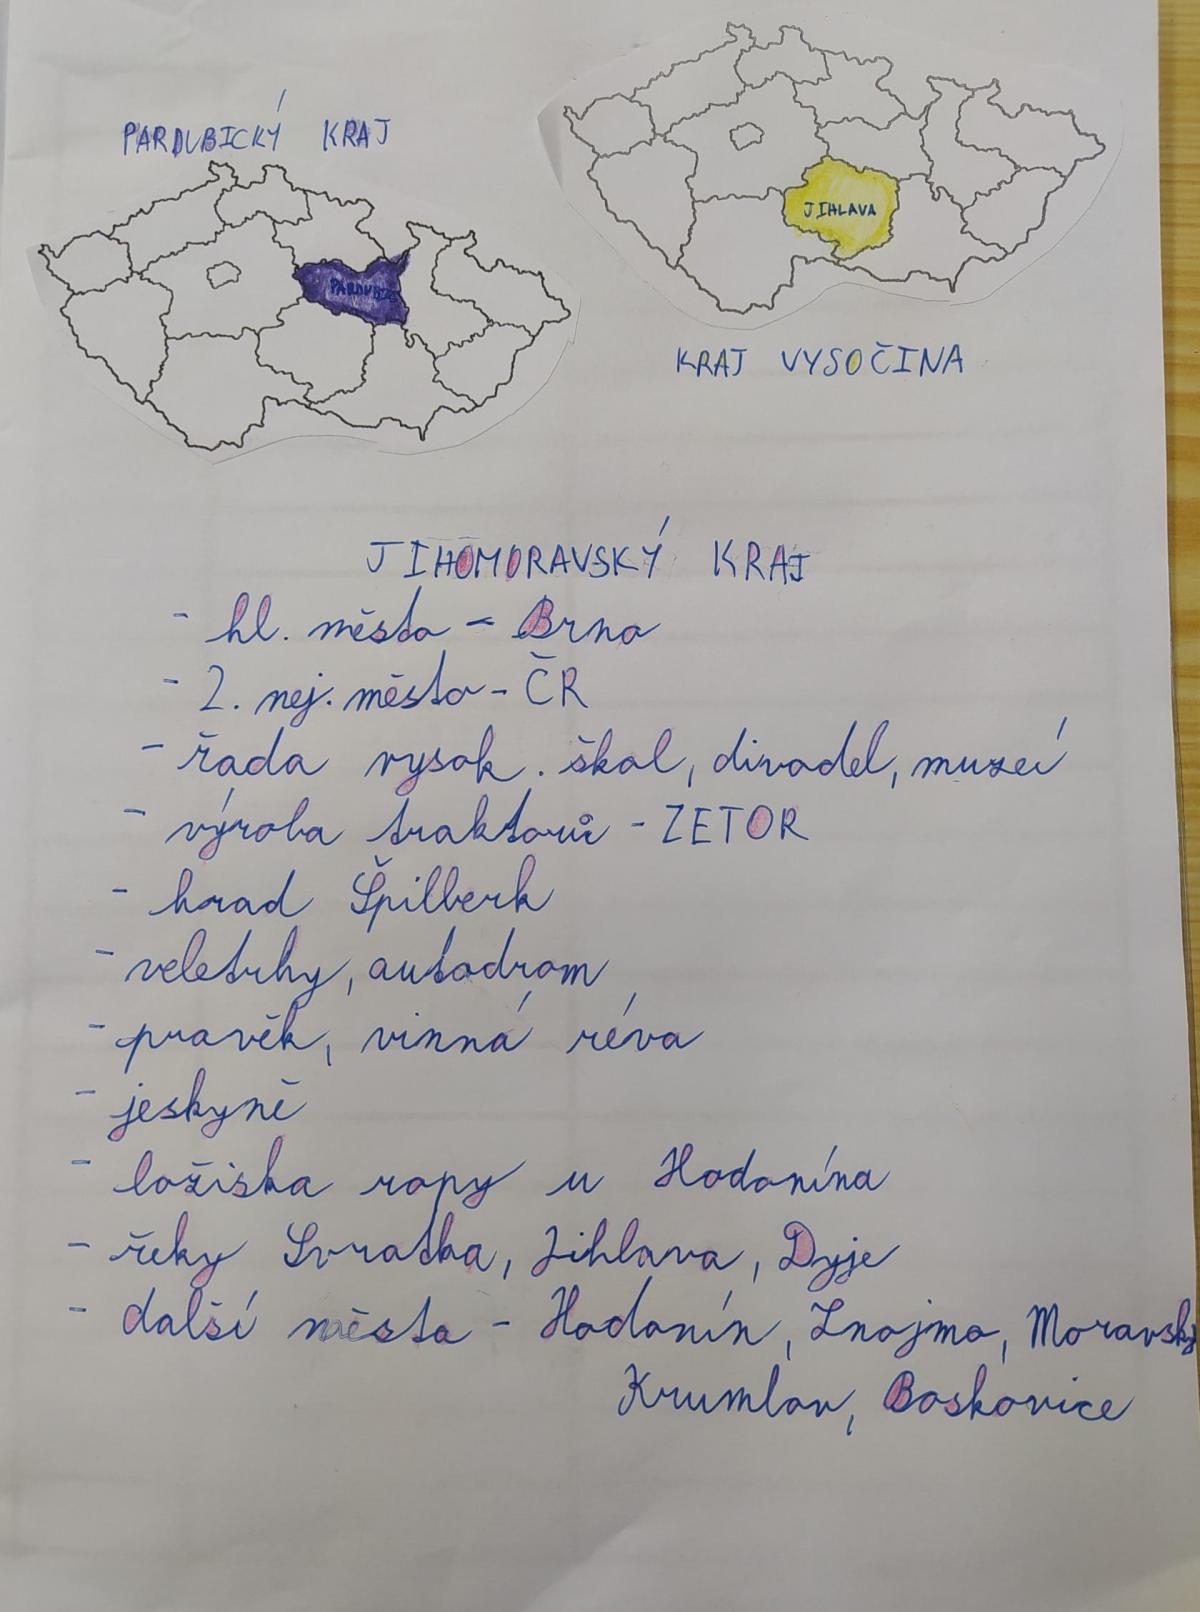 PARDUBICKÝ KRAJ
PARDUBICE
JIHLAVA
KRAJ VYSOČINA
JIHOMORAVSKÝ KRAJ
- hl. město - Brno
- 2. nej. město - ČR
- řada vysok. škol, divadel, muzeí
- výroba traktorů - ZETOR
- hrad Špilberk
- veletrhy, autodrom
- pravěk, vinná réva
- jeskyně
- ložiska ropy u Hodonína
- řeky Svratka, Jihlava, Dyje
- další města - Hodonín, Znojmo, Moravský
Krumlov, Boskovice